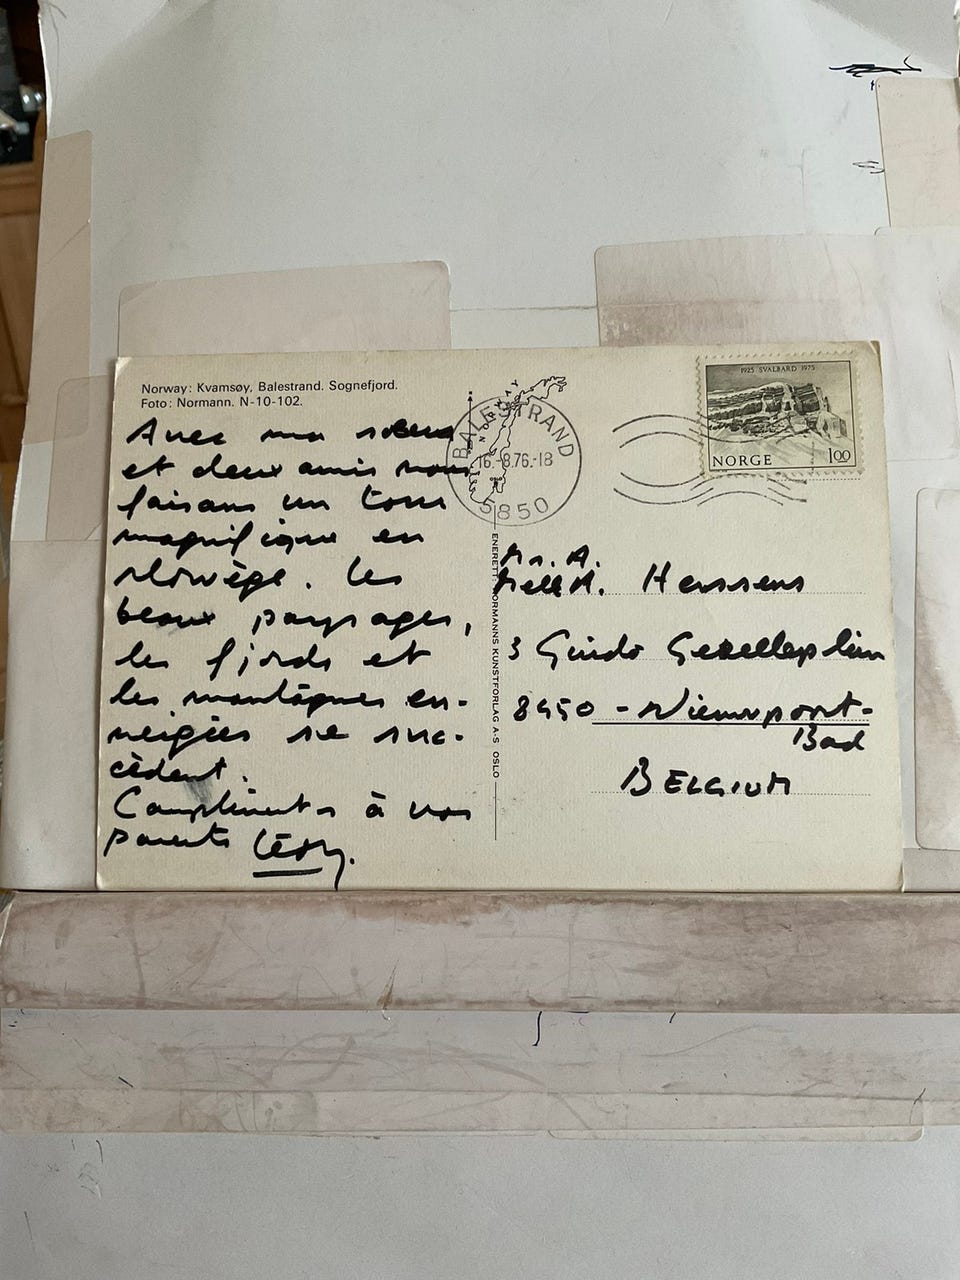 Norway: Kvamsøy, Balestrand. Sognefjord.
Foto: Normann. N-10-102.
Avec ma soeur
et deux amis nous
faisans un tour
magnifique en
Norvège. Les
beaux paysages,
les fjords et
les montagnes en-
neigées se suc-
cèdent.
Compliments à vos
parents Léon.
NORWAY
OSLO
BALESTRAND
16.-8.76.-18
5850
1925 SVALBARD 1975
NORGE 100
ENERETT: NORMANNS KUNSTFORLAG A-S OSLO
Mr. A.
Melle A. Herssens
3 Guido Gezelleplein
8450 - Nieuwpoort-
Bad
BELGIUM